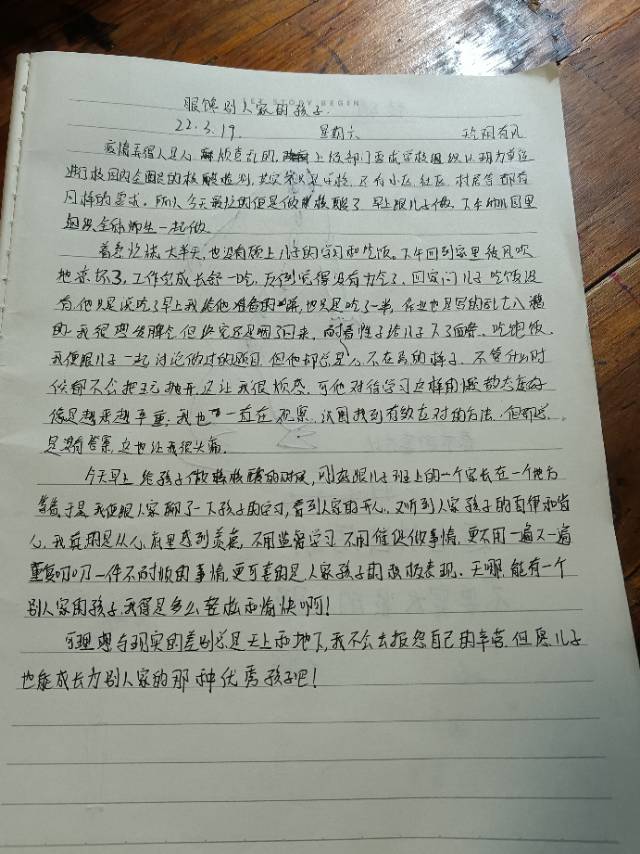 眼馋别人家的孩子.
STORY BEGIN
22.3.19. 星期六
疫情弄得人是人 烦意乱的, 上级部门要求学校组织以班为单位
进行校园内全面的核酸检测, 其实不只是学校, 还有小区, 社区, 村居等都有
同样的要求。所以今天最忙的但是做核酸了 早上跟儿子做, 下午幼儿园里
跟全体师生一起做。
着急忙活大半天, 也没有顾上儿子的学习和吃饭。下午回到家里被风吹
地
工作完成长舒一吃, 反倒觉得没有力气了, 回家问儿子吃饭没
有, 他只是说吃了早上我给他准备的 也只是吃了一半, 作业也是写的乱七八糟
的, 我很想发脾气但终究还是咽了回来, 耐着性子给儿子 吃饱饭,
我便跟儿子一起讨论做过的题目, 但他却总是心不在焉的样子, 不管什么时
候都不会 这让我很烦感, 可他对待学习这样的 态度好
像是越来越严重, 我也一直在观察, 试图找到有效应对的方法, 但可惜,
是没有答案, 这也让我很头痛。
今天早上给孩子做核酸的时候, 刚好跟儿子班上的一个家长在一个地方
等着, 于是我便跟人家聊了一下孩子的学习, 看到人家的开心, 又听到人家孩子的自律和省
心, 我真的是从心底里感到羡慕, 不用监督学习, 不用催促做事情, 更不用一遍又一遍
重复叨叨一件不耐烦的事情, 更可喜的是人家孩子的积极表现, 天哪, 能有一个
别人家的孩子, 我得是多么轻松而愉快啊!
可理想与现实的差别总是天上和地下, 我不会去抱怨自己的辛苦, 但愿儿子
也能成长为别人家的那种优秀孩子吧!